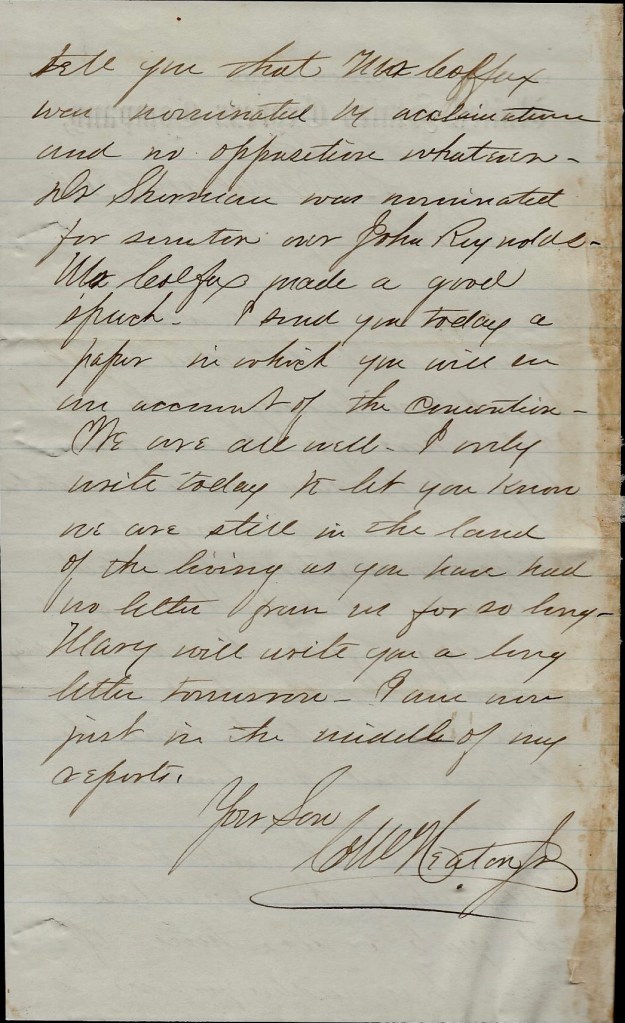 tell you that Mr Colffax
was nominated by acclamation
and no opposition whatever -
Dr Sherman was nominated
for senator over John Reynolds -
Mr Colfax made a good
speech - I send you today a
paper in which you will see
an account of the convention -
We are all well - I only
write today to let you know
we are still in the land
of the living as you have had
no letter from us for so long -
Mary will write you a long
letter tomorrow - I am now
just in the middle of my
reports.
Your Son
Heaton Jr